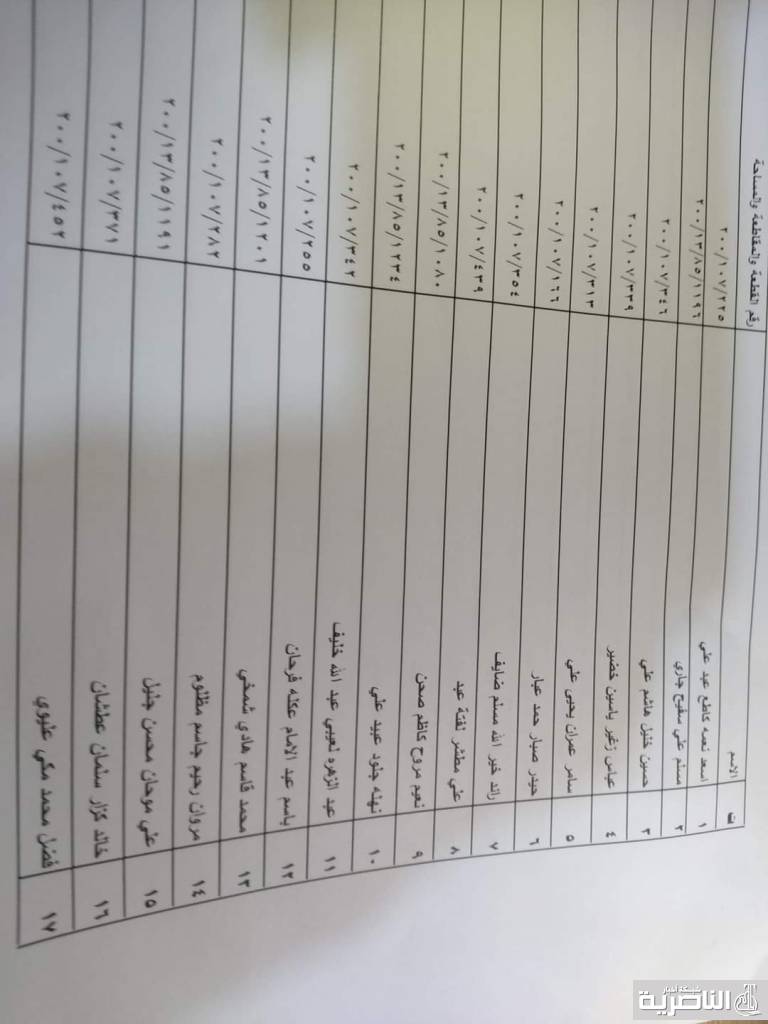 ت الاسم رقم القطعة والمقاطعة والمساحة
١ اسعد نعمه كاطع عبد علي ٢٠٠/١٠٧/٢٢٥
٢ مسلم علي سفيح جاري ٢٠٠/١٣/٨٥/١١٩٦
٣ حسين خليل هاشم علي ٢٠٠/١٠٧/٣٤٦
٤ عباس زغير ياسين خضير ٢٠٠/١٠٧/٣٣٩
٥ سامر عمران يحيى علي ٢٠٠/١٠٧/٣١٣
٦ حيدر صبار حمد عبار ٢٠٠/١٠٧/١٦٦
٧ رائد خير الله مسلم ضايف ٢٠٠/١٠٧/٣٥٤
٨ علي مطشر لفتة عبد ٢٠٠/١٠٧/٤٣٩
٩ نعيم مروح كاظم صحن ٢٠٠/١٣/٨٥/١٠٨٠
١٠ نهله جلود عبيد علي ٢٠٠/١٣/٨٥/١٢٣٤
١١ عبد الزهره لعيبي عبد الله خليف ٢٠٠/١٠٧/٣٤٢
١٢ باسم عبد الامام عكله فرحان ٢٠٠/١٠٧/٢٥٥
١٣ محمد قاسم هادي شمخي ٢٠٠/١٣/٨٥/١٢٠١
١٤ مروان رحيم جاسم مظلوم ٢٠٠/١٠٧/٢٨٢
١٥ علي موحان محسن جليل ٢٠٠/١٣/٨٥/١١٩١
١٦ خالد كزار سلمان عطشان ٢٠٠/١٠٧/٣٧١
١٧ فضل محمد مكي عليوي ٢٠٠/١٠٧/٤٥٢
شبكة أخبار
الناصرية